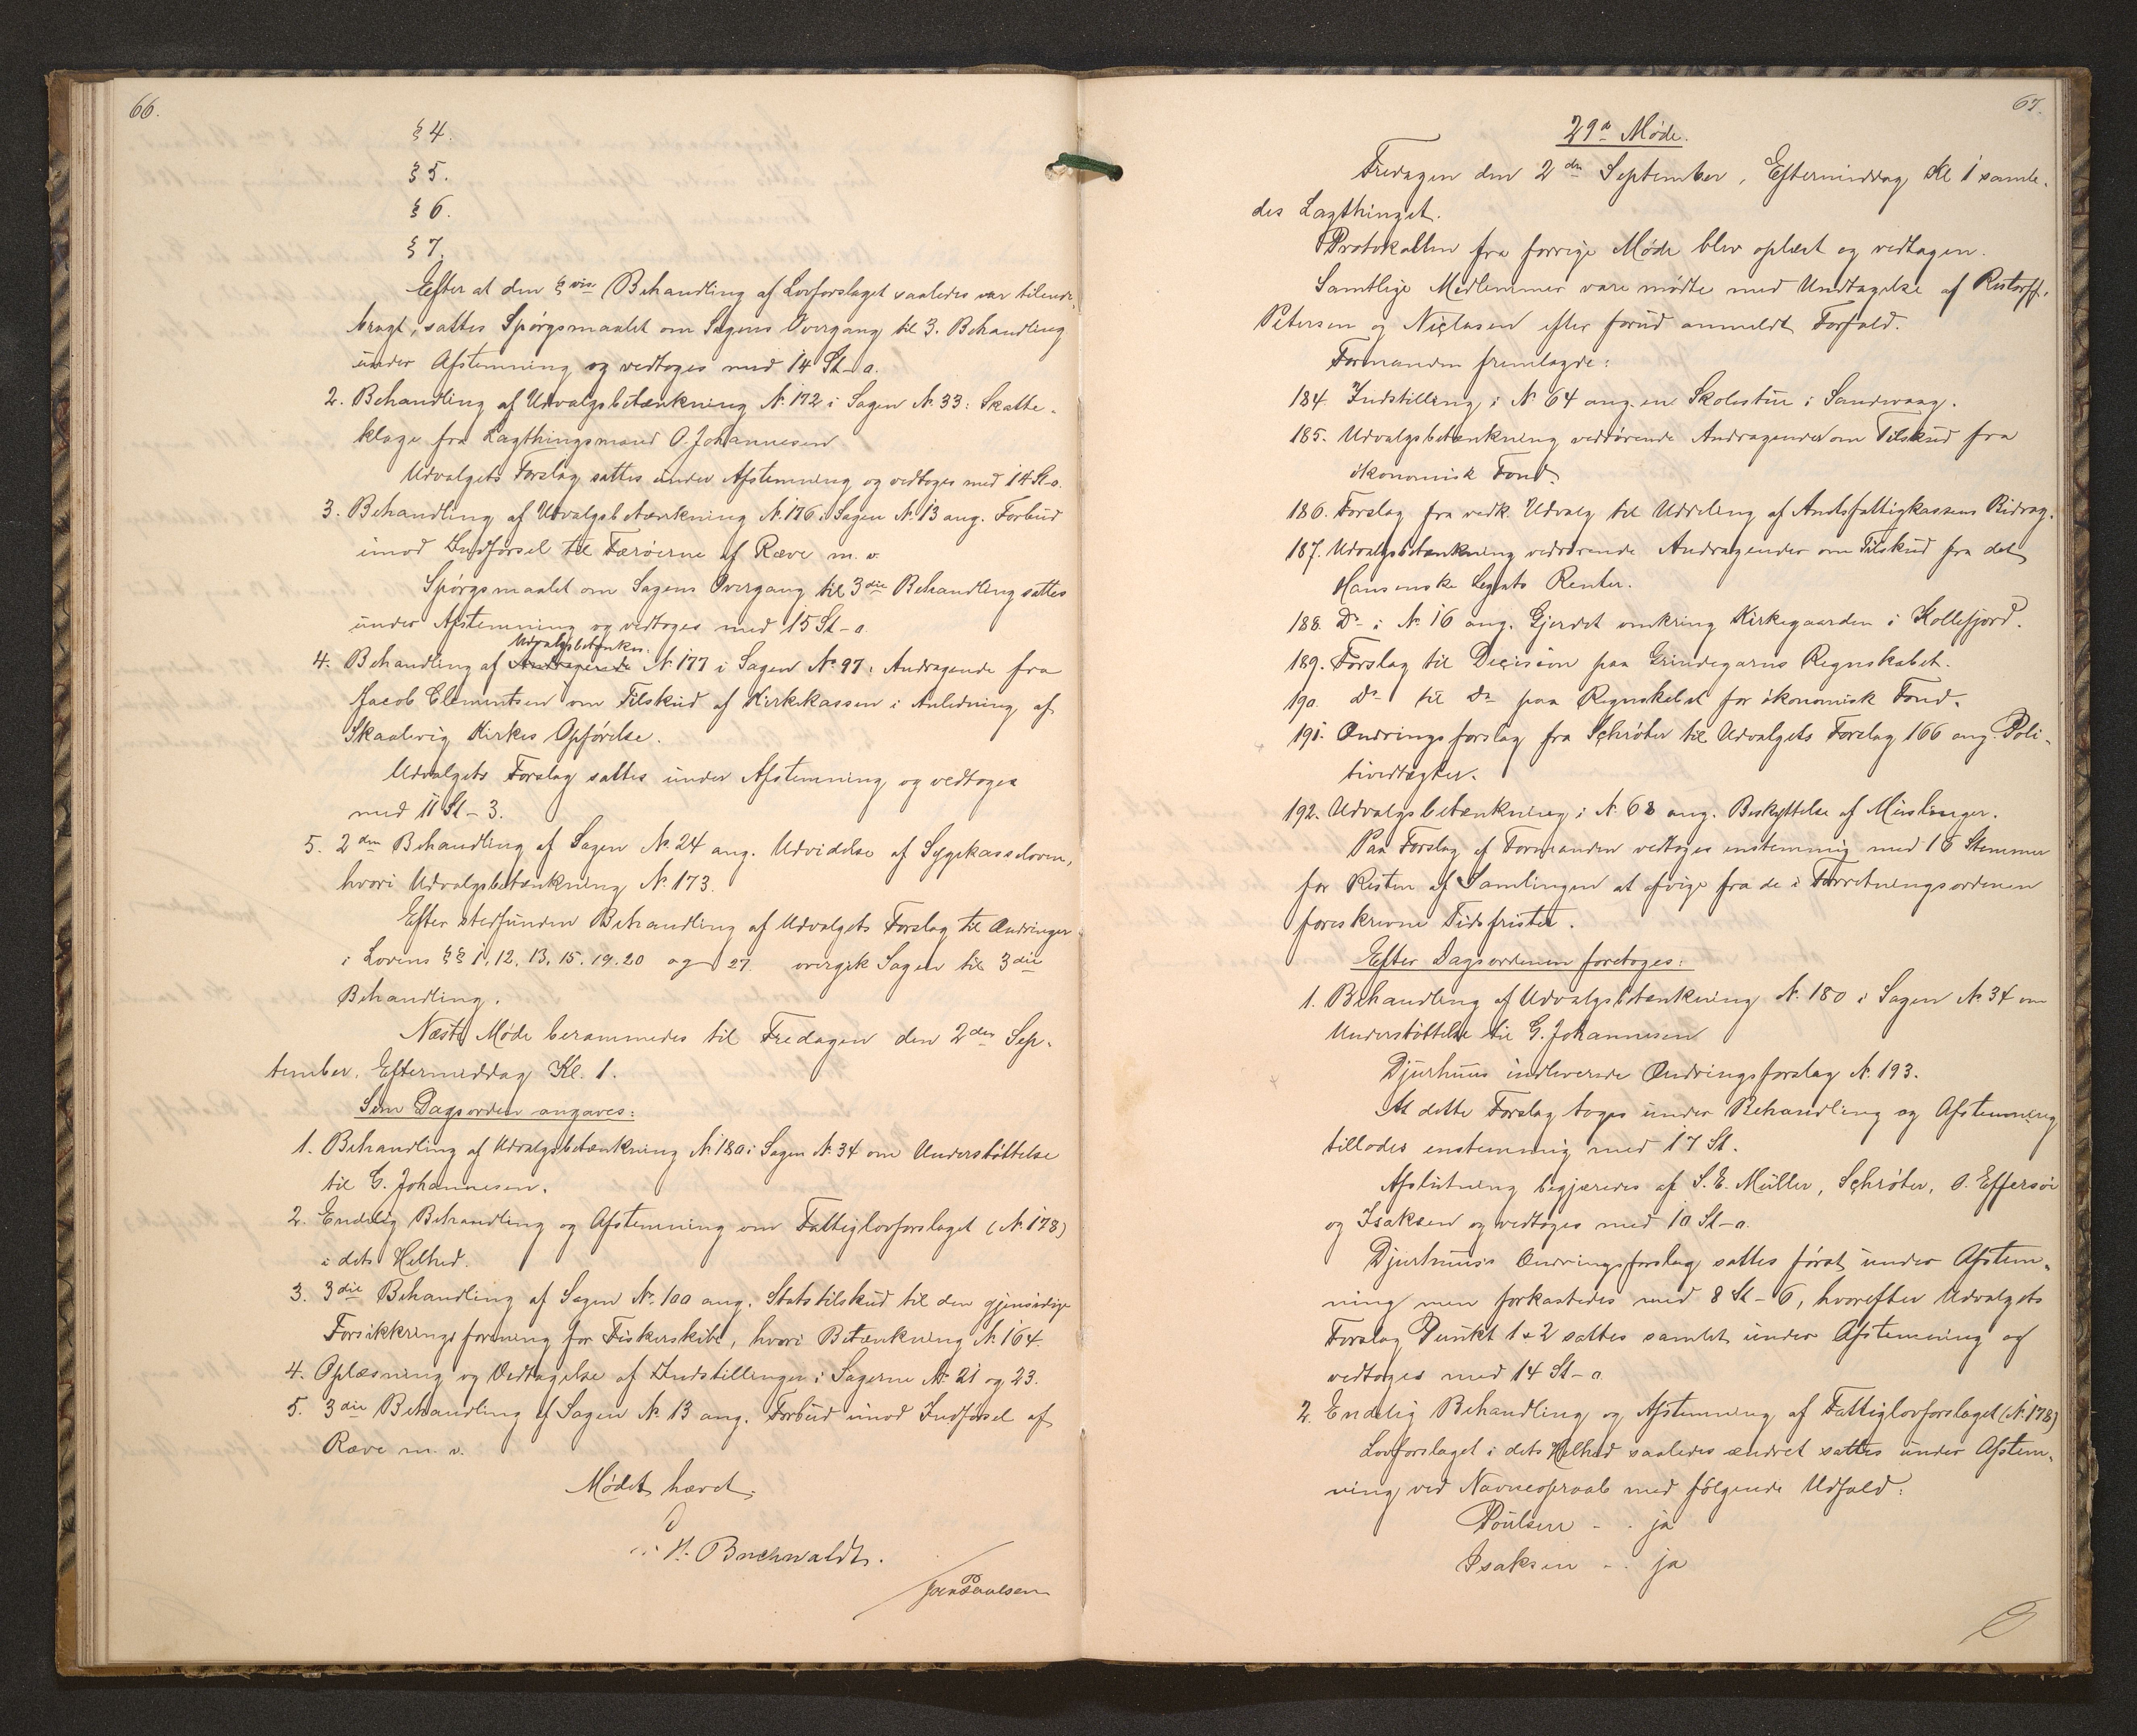 66.
§ 4.
§ 5.
§ 6.
§ 7.
Efter at den § vise Behandling af Lovforslaget saaledes var tilende,
bragt, sattes Spørgsmaalet om Sagens Overgang til 3. Behandling
under Afstemning og vedtoges med 14 St - 0.
2. Behandling af Udvalgsbetænkning №. 172 i Sagen №. 33: Skatte-
klage fra Lagthingsmand O. Johannesen
Udvalgets Forslag sattes under Afstemning og vedtoges med 14 St-0.
3. Behandling af Udvalgsbetænkning №. 176 i Sagen №. 13 ang. Forbud
imod Indførsel til Færøerne af Ræve m. v.
Spørgsmaalet om Sagens Overgang til 3die Behandling sattes
under Afstemning og vedtoges med 15 St - 0.
Udvalgsbetænkn.
4. Behandling af Andragende №. 177 i Sagen №. 97: Andragende fra
Jacob Clementsen om Tilskud af Kirkekassen i Anledning af
Skaalevig Kirkes Opførelse.
Udvalgets Forslag sattes under Afstemning og vedtoges
med 11 St - 3.
5. 2den Behandling af Sagen №. 24 ang. Udvidelse af Sygekasseloven,
hvori Udvalgsbetænkning №. 173.
Efter stedfunden Behandling af Udvalgets Forslag til Ændringer
i Lovens §§ 1, 12, 13, 15. 19. 20 og 27. overgik Sagen til 3die
Behandling.
Næste Møde berammedes til Fredagen den 2den Sep-
tember, Eftermiddag Kl. 1.
Som Dagsorden angaves:
1. Behandling af Udvalgsbetænkning №. 180 i Sagen №. 34 om Understøttelse
til G. Johannesen.
2. Endelig Behandling og Afstemning om Fattiglovforslaget (№. 178)
i dets Helhed.
3. 3die Behandling af Sagen №. 100 ang. Statstilskud til den gjensidige
Forsikkringsforening for Fiskerskibe, hvori Betænkning №. 164.
4. Oplæsning og Vedtagelse af Indstillinger i Sagerne №. 21 og 23.
5. 3die Behandling af Sagen №. 13 ang. Forbud imod Indførsel af
Ræve m. v.
Mødet hævet.
H. Buchwaldt.
Joen Poulsen
67.
29de Møde.
Fredagen den 2den September, Eftermiddag Kl 1 samle-
des Lagthinget.
Protokollen fra forrige Møde blev oplæst og vedtagen.
Samtlige Medlemmer vare mødte med Undtagelse af Restorff,
Petersen og Niclasen efter forud anmeldt Forfald.
Formanden fremlagde:
184. Indstilling i №. 64 ang. en Skolestue i Sandevaag.
185. Udvalgsbetænkning vedrørende Andragender om Tilskud fra
økonomisk Fond.
186. Forslag fra vedk. Udvalg til Uddeling af Amtsfattigkassens Bidrag.
187. Udvalgsbetænkning vedrørende Andragender om Tilskud fra det
Hansenske Legats Renter.
188. Do i №. 16 ang. Gjerdet omkring Kirkegaarden i Kollefjord.
189. Forslag til Decision paa Grindegarns Regnskabet.
190. do til do paa Regnskabet for økonomisk Fond.
191. Ændringsforslag fra Schrøter til Udvalgets Forslag 166 ang. Poli-
tivedtægter.
192. Udvalgsbetænkning i №. 68 ang. Beskyttelse af Muslinger.
Paa Forslag af Formanden vedtoges enstemmig med 16 Stemmer
for Resten af Samlingen at afvige fra de i Forretningsordenen
foreskrevne Tidsfrister.
Efter Dagsordenen foretoges:
1. Behandling af Udvalgsbetænkning №. 180 i Sagen №. 34 om
Understøttelse til G. Johannesen
Djurhuus indleverede Ændringsforslag №. 193.
At dette Forslag toges under Behandling og Afstemning
tillodes enstemmig med 17 St.
Afslutning begjæredes af S. E. Müller, Schrøter, O. Effersøe
og Isaksen og vedtoges med 10 St - 0.
Djurhuus's Ændringsforslag sattes først under Afstem-
ning men forkastedes med 8 St - 6, hvorefter Udvalgets
Forslag Punkt 1 & 2 sattes samlet under Afstemning og
vedtoges med 14 St - 0.
2. Endelig Behandling og Afstemning af Fattiglovforslaget (№. 178)
Lovforslaget i dets Helhed saaledes ændret sattes under Afstem-
ning ved Navneopraab med følgende Udfald:
Poulsen - - ja
Isaksen - - ja